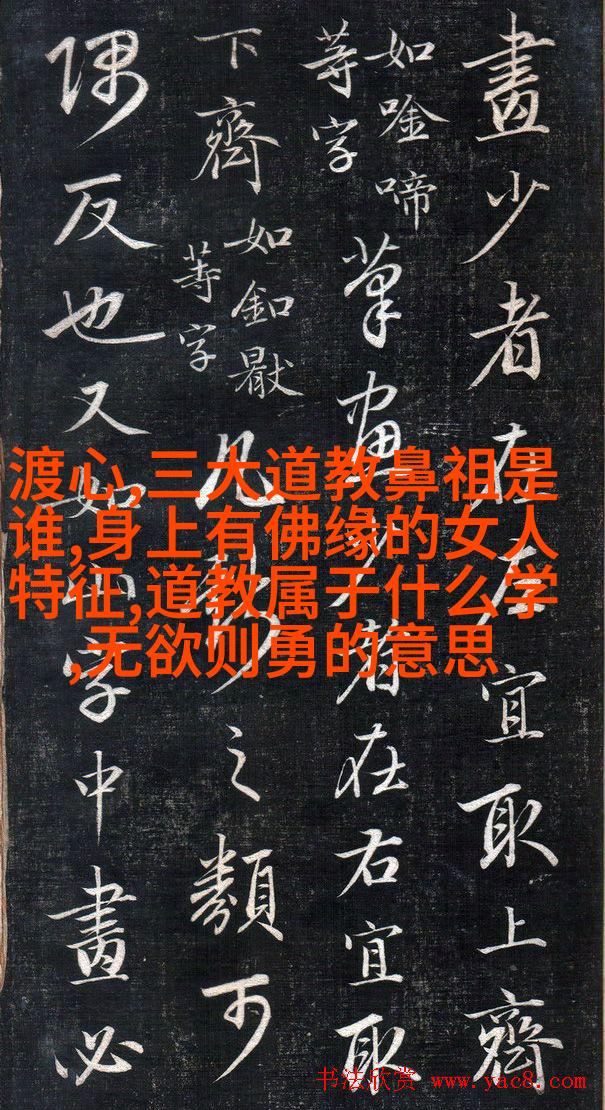 畫少者在左宜取上齊
如唫啼
等字
筆畫少者在右宜取
下齊
如釦
等字
凡之類可
隅反也又如字中畫必
渡心,三大道教鼻祖是
谁,身上有佛缘的女人
特征,道教属于什么学
,无欲则勇的意思
书法欣赏 www.yac8.com